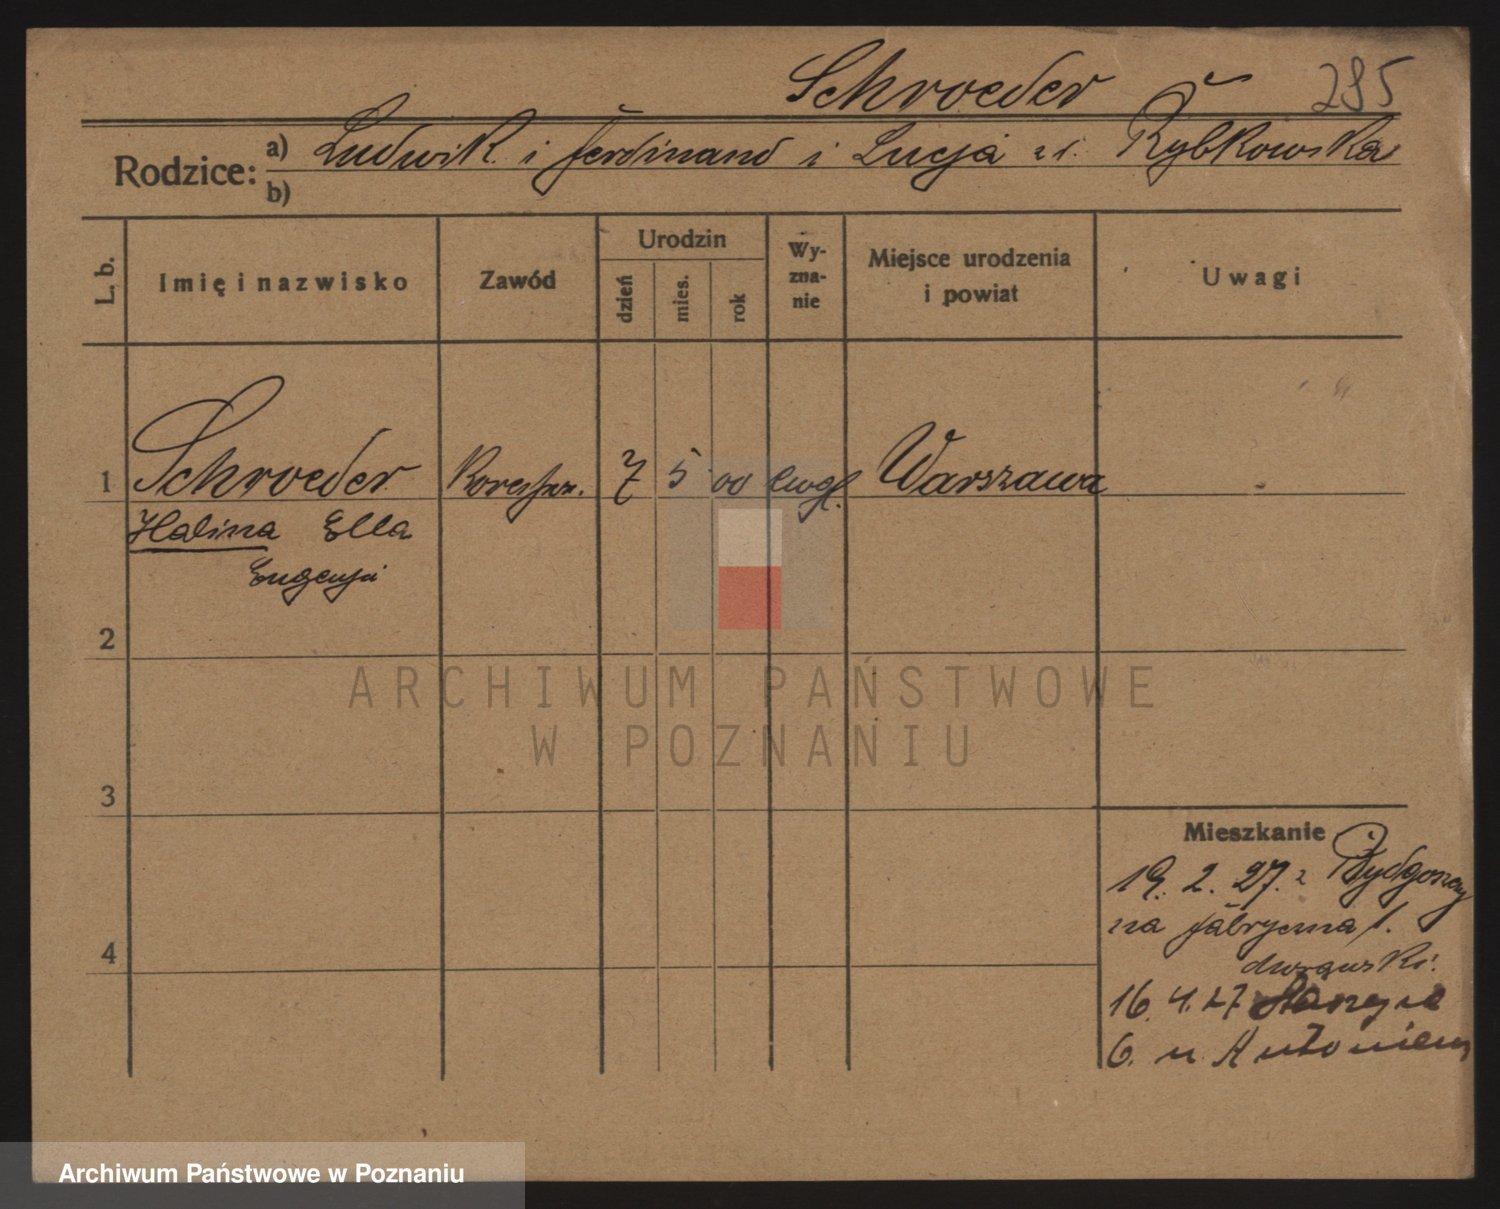 Schroeder 285
Rodzice: a) Ludwik i Ferdinand i Lucja z d. Rybkowska
b)
L. b. Imię i nazwisko Zawód Urodzin dzień mies. rok Wy-zna-nie Miejsce urodzenia i powiat Uwagi
1 Schroeder 7 5 00 ewgl. Warszawa
Halina Ella
Eugenja
2
3
4
Mieszkanie
19. 2. 27. z Bydgoszczy
na Fabryczna 1.
16. 4. 27
6. u
ARCHIWUM PAŃSTWOWE
W POZNANIU
Archiwum Państwowe w Poznaniu